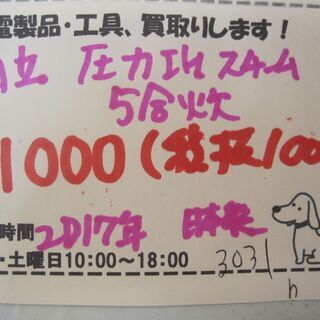 電製品・工具、買取りします!
日立 圧力IH スチーム
5合炊
1000(税抜100
時間 2017年
・土曜日10:00~18:00 3031
h